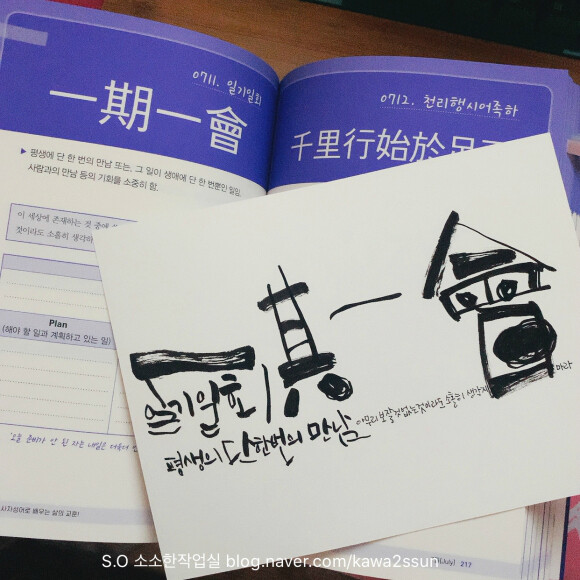 0711. 일기일회
一期一會
▶ 평생에 단 한 번의 만남 또는, 그 일이 생애에 단 한 번뿐인 일임.
사람과의 만남 등의 기회를 소중히 함.
이 세상에 존재하는 것 중에
것이라도 소홀히 생각하
Plan
(해야 할 일과 계획하고 있는 일)
오늘 준비가 안 된 자는 내일은 더욱더
사자성어로 배우는 삶의 교훈!
0712. 천리행시어족하
千里行始於足下
一期一會
일기일회
평생의 단 한번의 만남
아무리 보잘것없는것이라도 소홀히 생각지 마라
(July) 217
S.O 소소한작업실 blog.naver.com/kawa2ssun